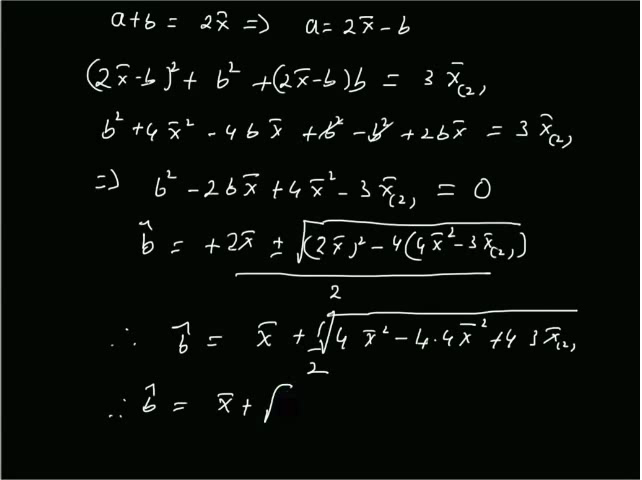 a+b = 2x̄ => a = 2x̄-b
(2x̄-b)² + b² + (2x̄-b)b = 3 x̄₍₂₎
b² + 4x̄² - 4bx̄ + b² - b² + 2bx̄ = 3 x̄₍₂₎
=> b² - 2bx̄ + 4x̄² - 3x̄₍₂₎ = 0
b̂ = +2x̄ ± √(2x̄)² - 4(4x̄² - 3x̄₍₂₎)
2
∴ b̂ = x̄ + 1/2 √4 x̄² - 4·4x̄² + 4 3x̄₍₂₎
∴ b̂ = x̄ + √